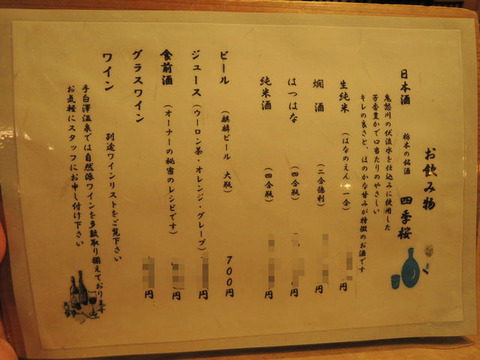 お飲み物
日本酒 栃木の銘酒 四季桜
鬼怒川の伏流水を仕込みに使用した
芳香豊かで口当たりのやさしい
キレの良さと、ほのかな甘みが特徴のお酒です
生純米 (はなのえん 一合) 円
燗酒 (二合徳利) 円
はつはな (四合瓶) 円
純米酒 (四合瓶) 円
ビール (麒麟ビール 大瓶) 700円
ジュース (ウーロン茶・オレンジ・グレープ) 円
食前酒 (オーナーの秘密のレシピです) 円
グラスワイン 円
ワイン 別途ワインリストをご覧下さい
手白澤温泉では自然派ワインを多数取り揃えております
お気軽にスタッフにお申し付け下さい